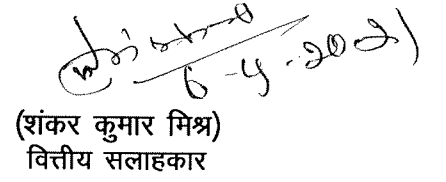 6-4-2021
(शंकर कुमार मिश्र)
वित्तीय सलाहकार